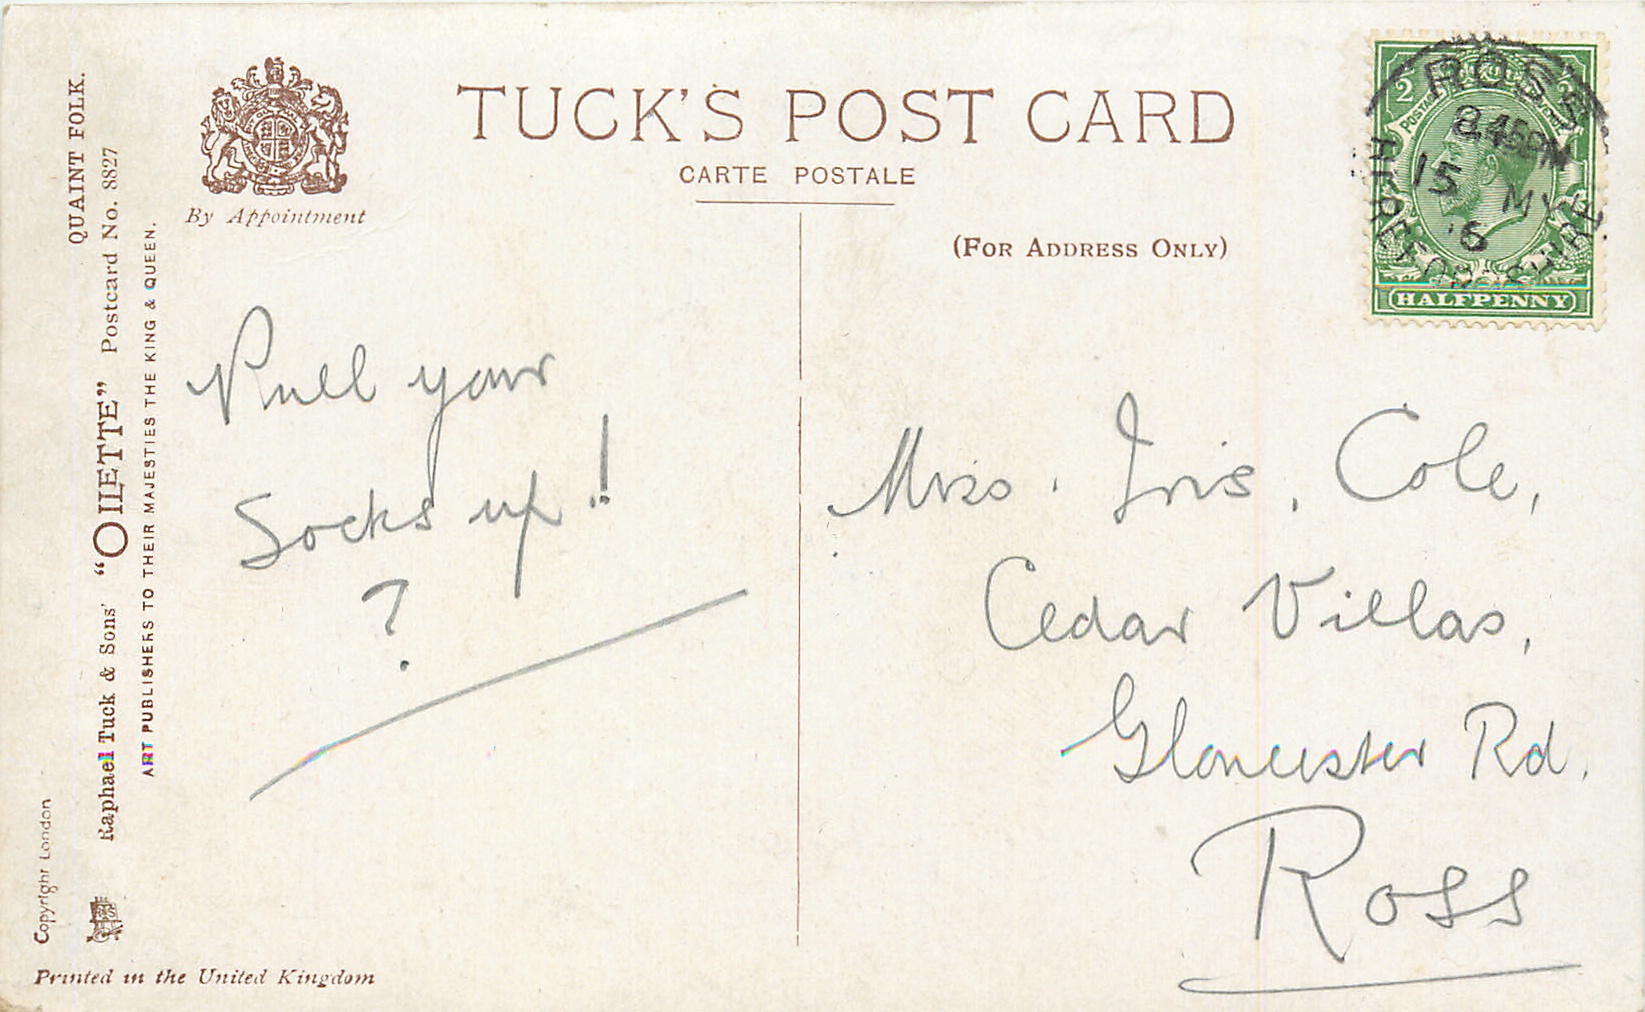 QUAINT FOLK.
Raphael Tuck & Sons' "OILETTE" Postcard No. 8827
ART PUBLISHERS TO THEIR MAJESTIES THE KING & QUEEN.
Copyright London
By Appointment
TUCK'S POST CARD
CARTE POSTALE
(FOR ADDRESS ONLY)
ROSS
8.45PM
15 MY
16
HEREFORDSHIRE
HALFPENNY
Pull your
Socks up!!
?
Miss. Iris. Cole,
Cedar Villas,
Gloucester Rd.
Ross
Printed in the United Kingdom